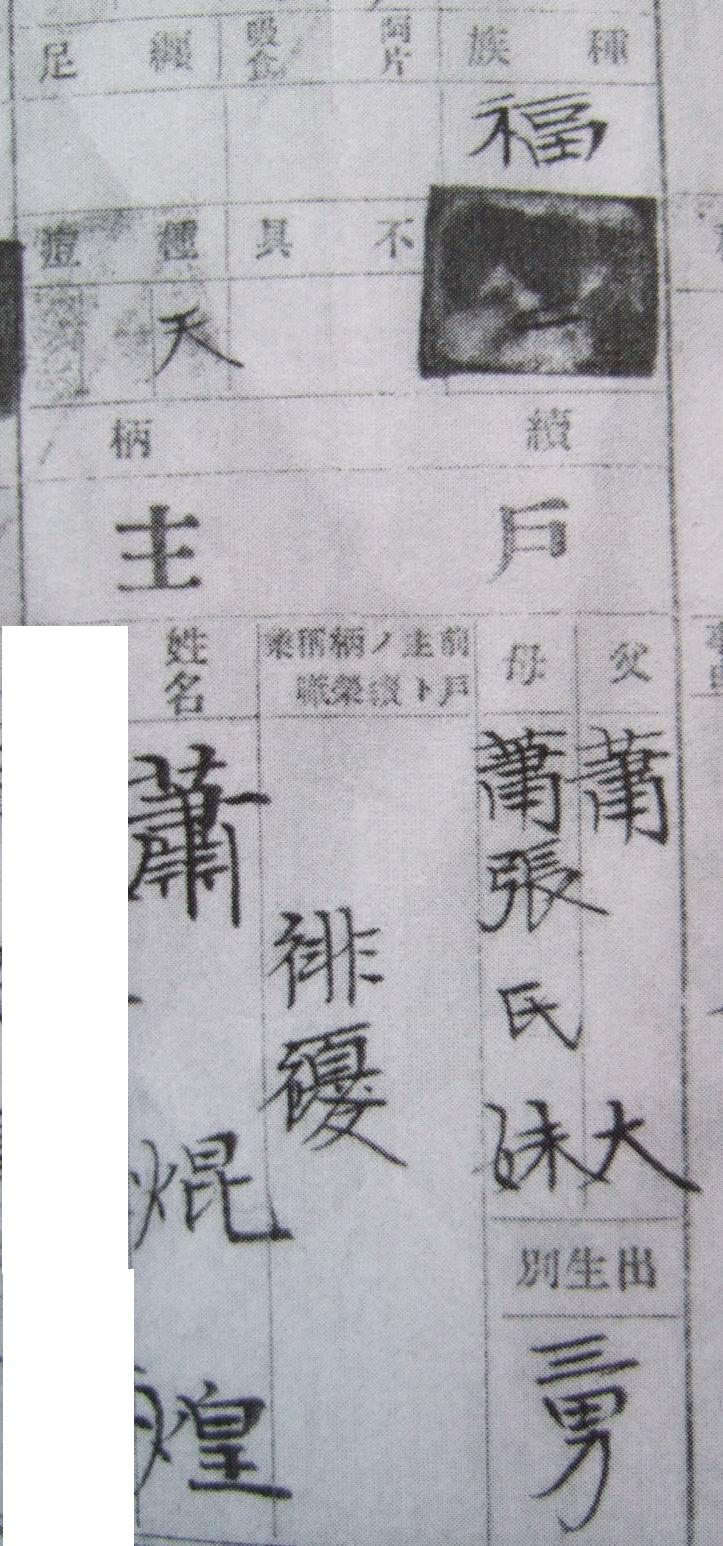 種族
福
阿片吸食
纏足
不具
種痘
天
續柄
戶主
父
蕭大
母
蕭張氏妹
出生別
三男
前戶主トノ續柄榮稱職業
俳優
姓名
蕭焜煌